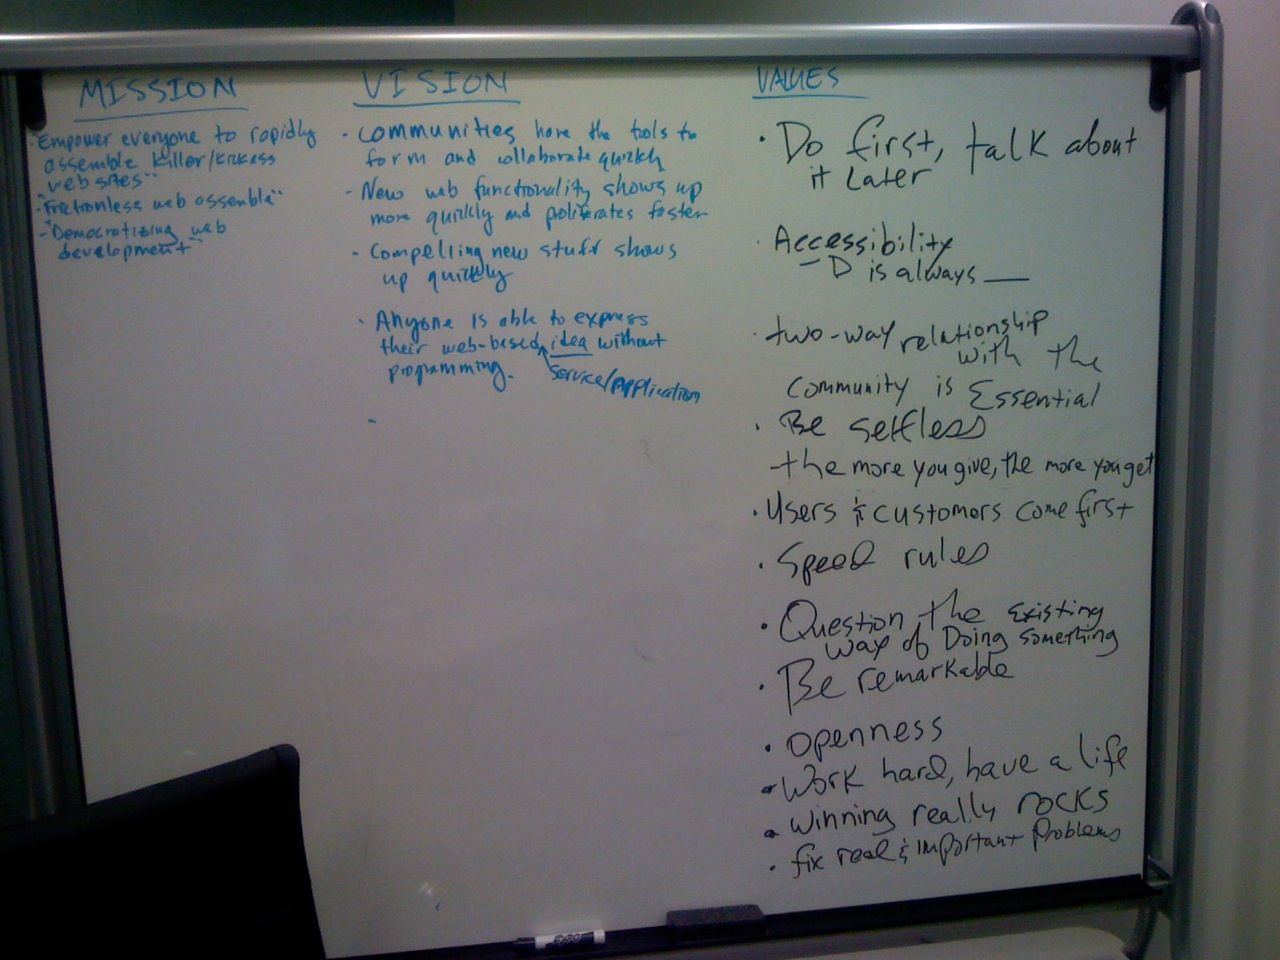 MISSION
- Empower everyone to rapidly
assemble killer/kickass
web sites"
- "Frictionless web assembla"
- "Democratizing web
development"
VISION
· Communities have the tools to
form and collaborate quickly
- New web functionality shows up
more quickly and proliferates faster
- Compelling new stuff shows
up quickly
· Anyone is able to express
their web-based idea without
programming.
Service/Application
-
VALUES
· Do first, talk about
it Later
· Accessibility
- D is always __
· two-way relationship
with the
community is Essential
· Be selfless
- the more you give, the more you get
· Users & customers come first
· Speed rules
· Question the Existing
way of Doing something
· Be remarkable
· openness
· Work hard, have a life
· winning really rocks
· fix real & important Problems
EXPO